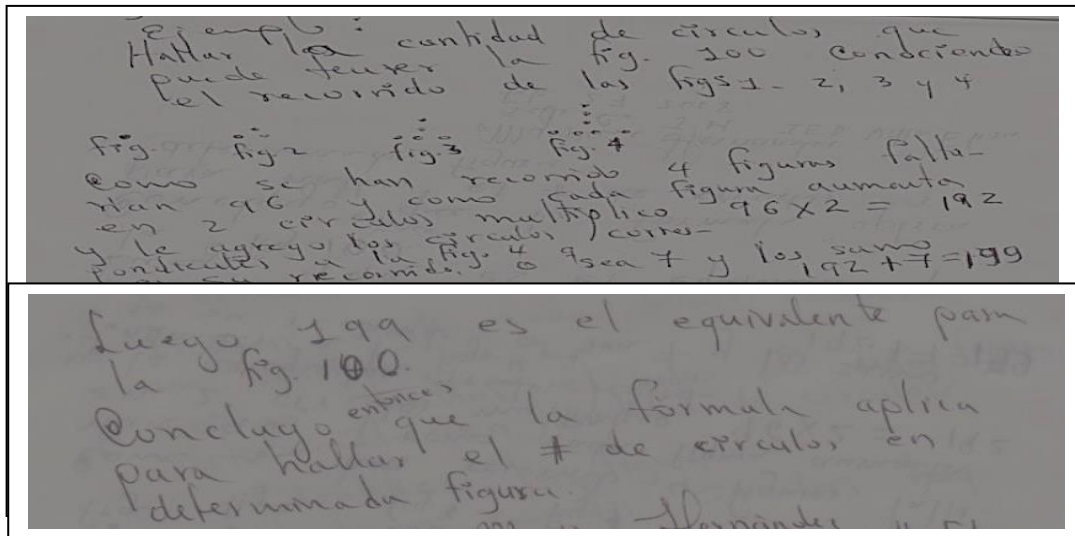 Ejemplo:
Hallar la cantidad de círculos que
puede tener la fig. 100 conociendo
el recorrido de las figs 1- 2, 3 y 4
fig. fig. 2 fig. 3 fig. 4
Como se han recorrido 4 figuras falta-
rían 96 y como cada figura aumenta
en 2 círculos multiplico 96 X 2 = 192
y le agrego los círculos corres-
pondientes a la fig. 4 o sea 7 y los sumo
recorrido. 192 + 7 = 199
Luego 199 es el equivalente para
la fig. 100.
Concluyo entonces que la fórmula aplica
para hallar el # de círculos en
determinada figura.
Hernández